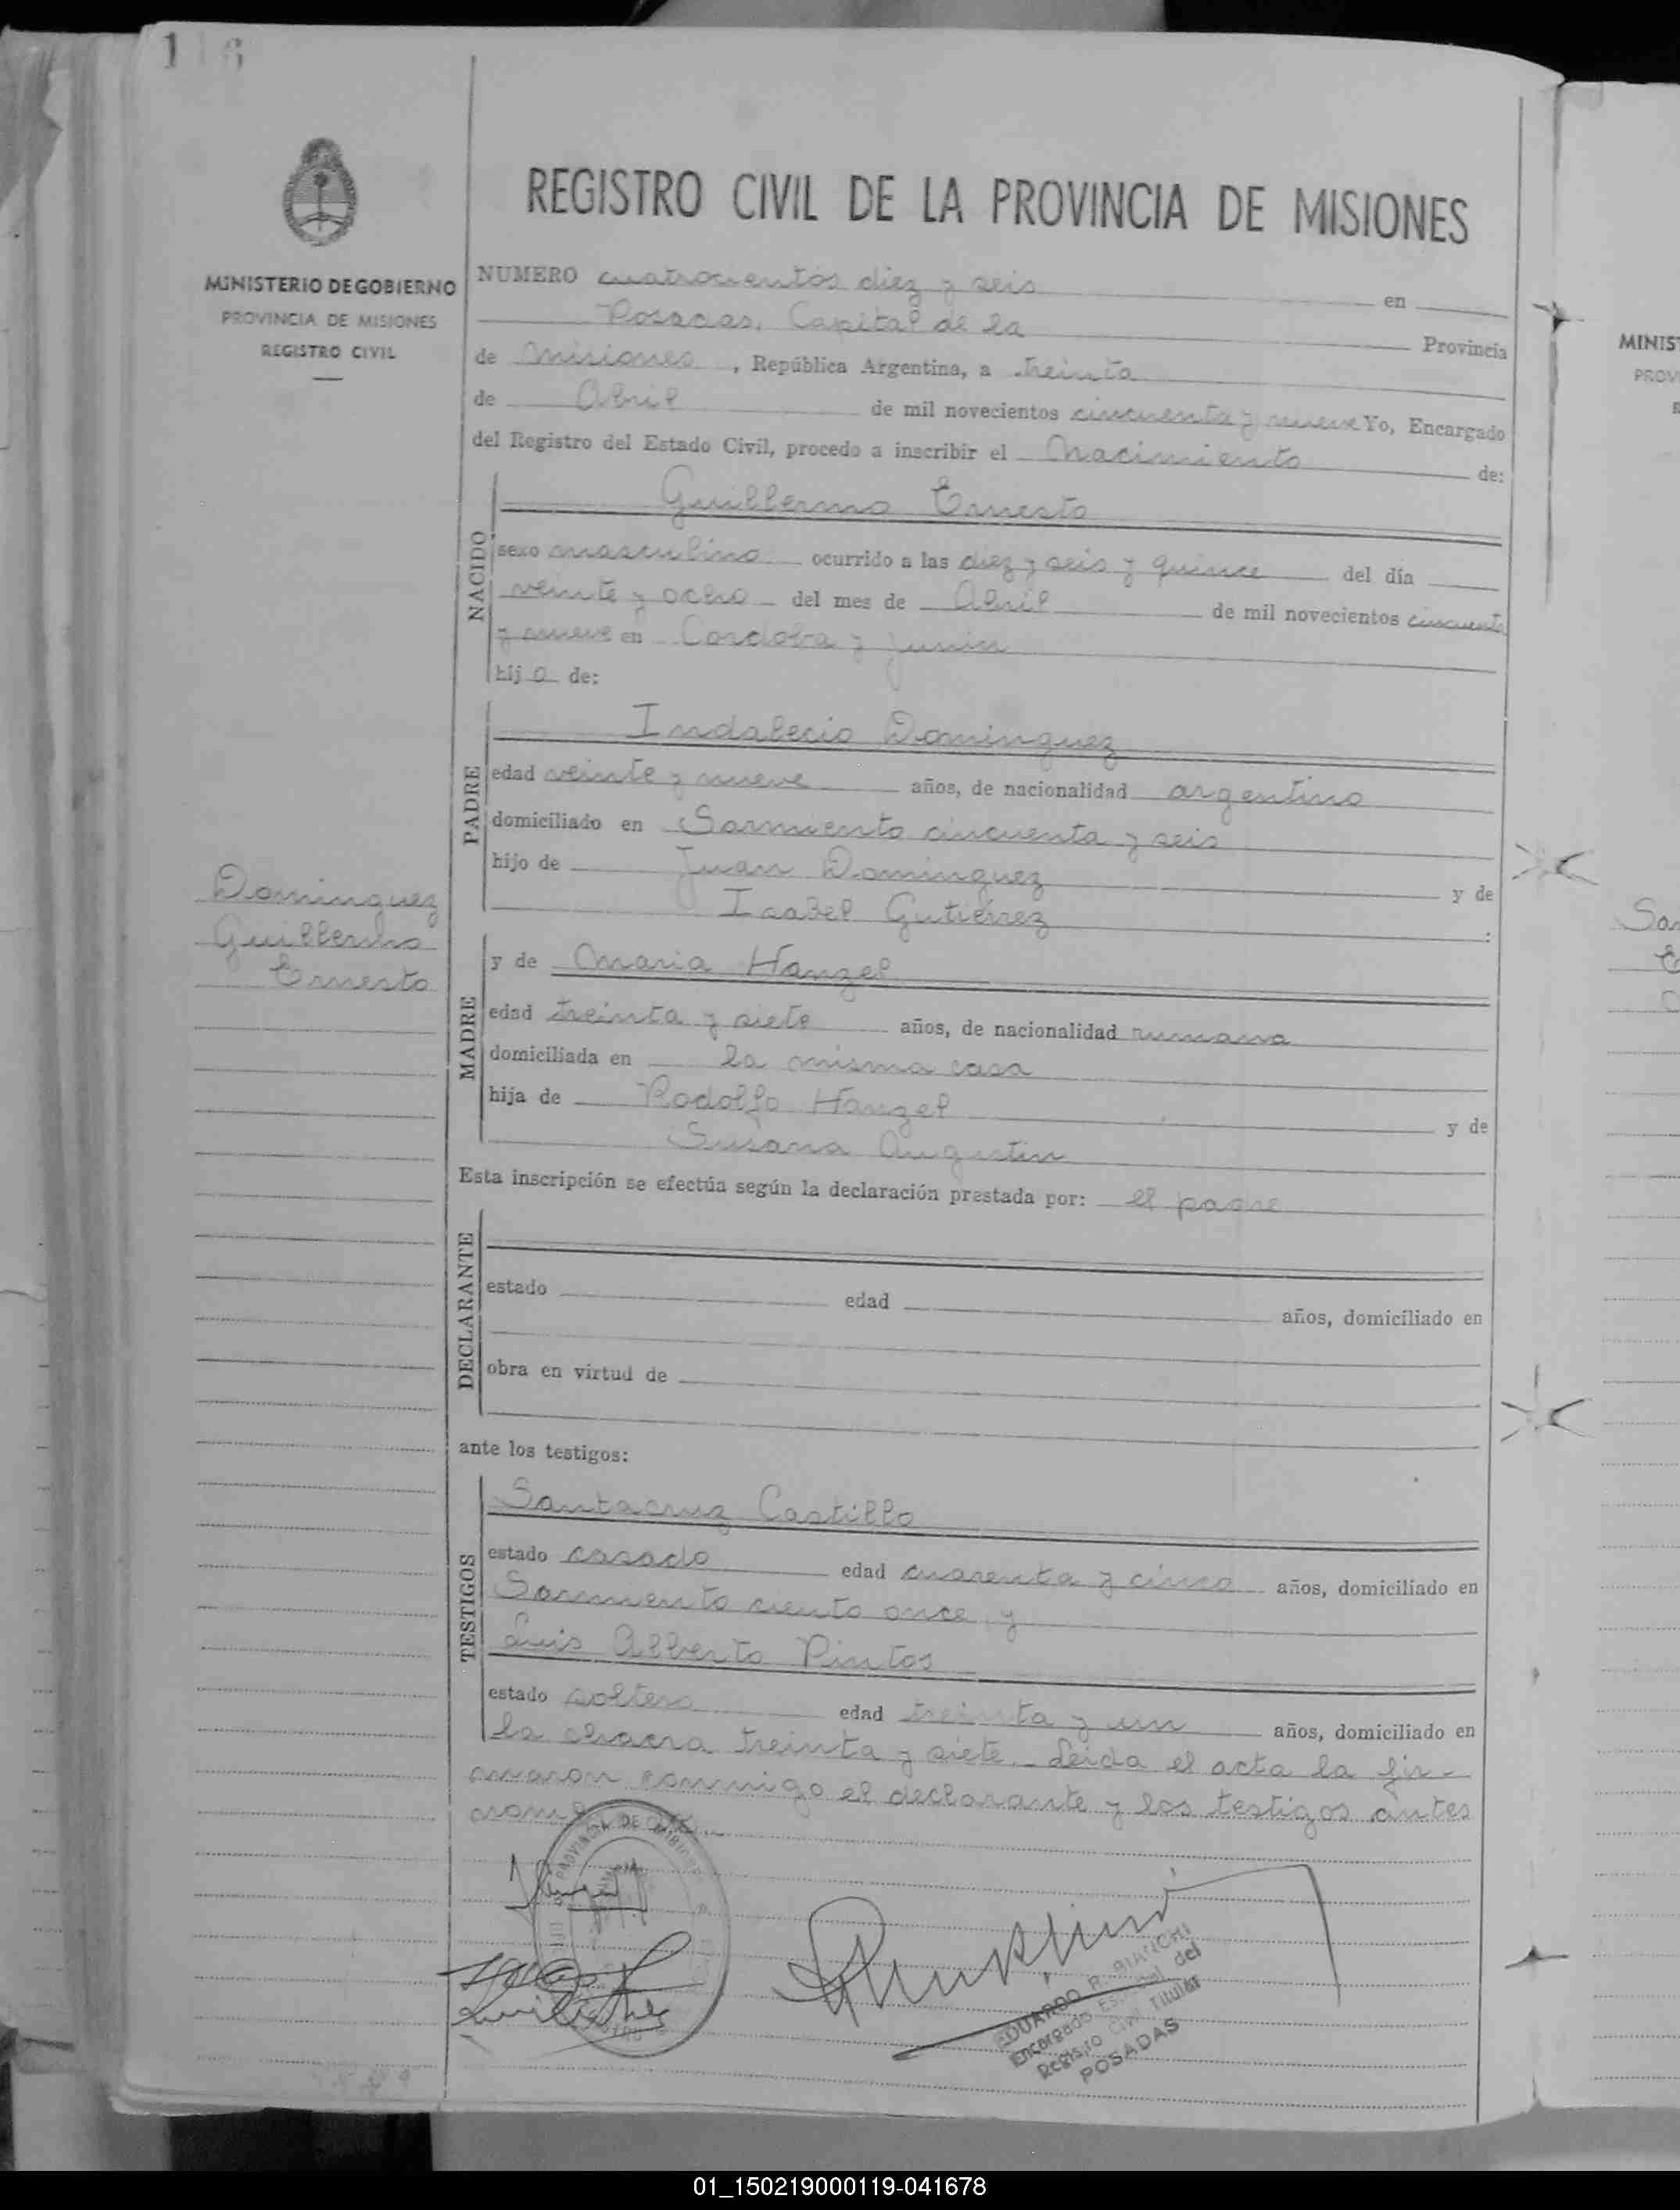 116
REGISTRO CIVIL DE LA PROVINCIA DE MISIONES
MINISTERIO DE GOBIERNO
PROVINCIA DE MISIONES
REGISTRO CIVIL
NUMERO cuatrocientos diez y seis en
Posadas, Capital de la Provincia
de Misiones, República Argentina, a treinta
de Abril de mil novecientos cincuenta y nueve Yo, Encargado
del Registro del Estado Civil, procedo a inscribir el Nacimiento de:
NACIDO
Guillermo Ernesto
sexo masculino ocurrido a las diez y seis y quince del día
veinte y ocho del mes de Abril de mil novecientos cincuenta
y nueve en Cordoba y Junin
hijo de:
PADRE
Indalecio Dominguez
edad veinte y nueve años, de nacionalidad argentino
domiciliado en Sarmiento cincuenta y seis
hijo de Juan Dominguez y de
Isabel Gutiérrez :
Dominguez
Guillermo
Ernesto
MADRE
y de Maria Hanzel
edad treinta y siete años, de nacionalidad rumana
domiciliada en la misma casa
hija de Rodolfo Hanzel y de
Susana Augustin
Esta inscripción se efectúa según la declaración prestada por: el padre
DECLARANTE
estado edad años, domiciliado en
obra en virtud de
ante los testigos:
TESTIGOS
Santacruz Castillo
estado casado edad cuarenta y cinco años, domiciliado en
Sarmiento ciento once y
Luis Alberto Pintos
estado soltero edad treinta y un años, domiciliado en
la chacra treinta y siete. Leida el acta la fir-
maron conmigo el declarante y los testigos antes
PROVINCIA DE MISIONES
EDUARDO R. BIANCHI
Encargado Escr del
Registro Civil Titular
POSADAS
MINIS
PROV
San
01_150219000119-041678